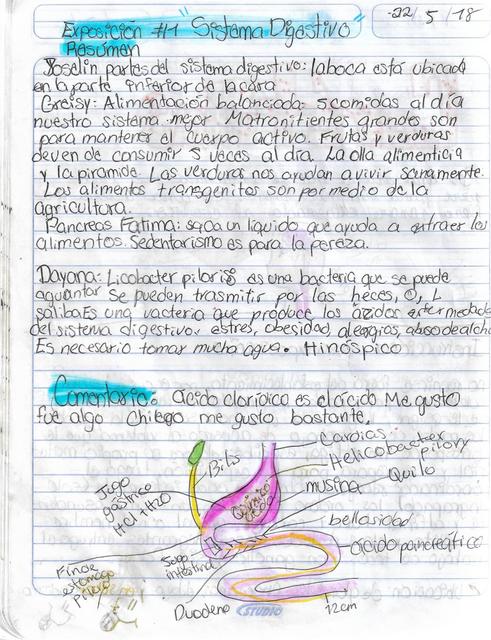 Exposición #1 "Sistema Digestivo"
22/5/18
Resúmen
Yoselin partes del sistema digestivo: la boca está ubicada
en la parte inferior de la cara
Greisy: Alimentación balanciada: 5 comidas al día
nuestro sistema mejor Matronitientes grandes son
para mantener el cuerpo activo. Frutas y verduras
deven de consumir 5 veces al día. La olla alimenticia
y la piramide. Las verduras nos ayudan a vivir sanamente.
Los alimentos transgenitos son por medio de la
agricultura.
Pancreas Fatima: saca un liquido que ayuda a extraer los
alimentos. Sedentarismo es para la pereza.
Dayana: Licobacter piloris es una bacteria que se puede
aguantar Se pueden trasmitir por las heces, O, L
saliba Es una vacteria que produce los ácidos enfermedades
del sistema digestivo. estres, obesidad, alergias, abuso de alcho
Es necesario tomar mucha agua. Hinóspico
Comentario: ácido cloridico es el ácido Me gusto
fue algo Chilero me gusto bastante.
Cardias
Helicobacter pilory
Bilis
Quilo
musina
Jugo gástrico HCl + H2O
Quimico
bellasidad
ácido pancreático
Fin de estomago piloro
Jugo intestinal
Duodeno
STUDIO
12cm